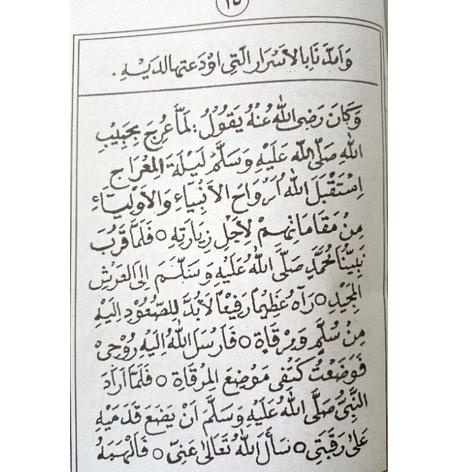 ١٥
وَامِدَّنَا بِالْاَسْرَارِ الَّتِى اَوْدَعْتَهَا لَدَيْهِ .
وَكَانَ رَضِىَ اللّٰهُ عَنْهُ يَقُوْلُ : لَمَّا عُرِجَ بِحَبِيْبِ
اللّٰهِ صَلَّى اللّٰهُ عَلَيْهِ وَسَلَّمَ لَيْلَةَ الْمِعْرَاجِ
اِسْتَقْبَلَ اللّٰهُ اَرْوَاحَ الْاَنْبِيَاءِ وَالْاَوْلِيَاءِ
مِنْ مَقَامَاتِهِمْ لِاَجْلِ زِيَارَتِهِ ۝ فَلَمَّا قَرُبَ
نَبِيُّنَا مُحَمَّدٌ صَلَّى اللّٰهُ عَلَيْهِ وَسَلَّمَ اِلَى الْعَرْشِ
الْمَجِيْدِ ۝ رَآهُ عَظِيْمًا رَفِيْعًا لَابُدَّ لِلصُّعُوْدِ اِلَيْهِ
مِنْ سُلَّمٍ وَمِرْقَاةٍ ۝ فَاَرْسَلَ اللّٰهُ اِلَيْهِ رُوْحِىْ
فَوَضَعْتُ كَتِفِى مَوْضِعَ الْمِرْقَاةِ ۝ فَلَمَّا اَرَادَ
النَّبِىُّ صَلَّى اللّٰهُ عَلَيْهِ وَسَلَّمَ اَنْ يَضَعَ قَدَمَيْهِ
عَلَى رَقَبَتِى ۝ سَأَلَ اللّٰهَ تَعَالَى عَنِّى ۝ فَاَلْهَمَهُ